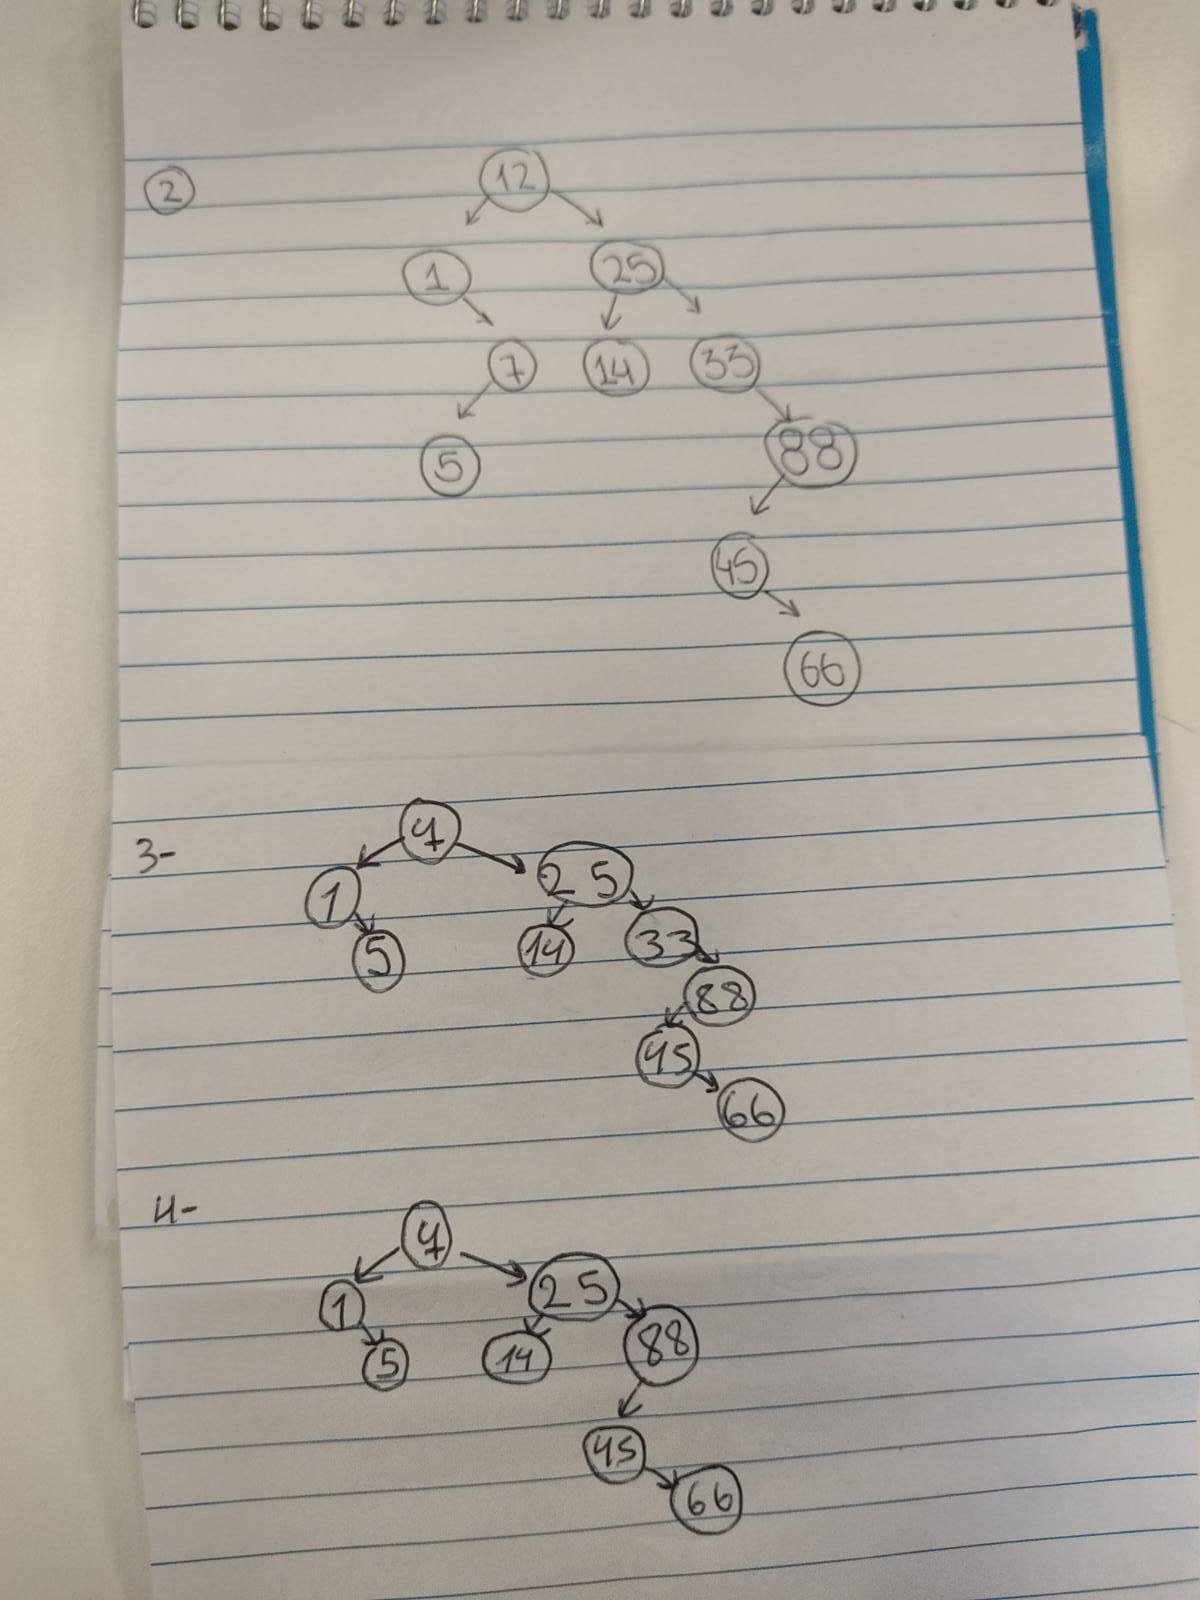 2
12
1 25
7 14 33
5 88
45
66
3-
7
1 25
5 14 33
88
45
66
4-
7
1 25
5 14 88
45
66